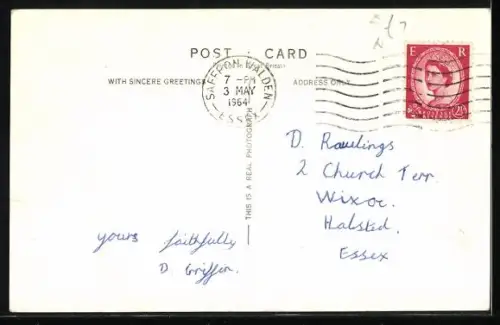 POST CARD
WITH SINCERE GREETINGS
ADDRESS ONLY
SAFFRON WALDEN
7 - PM
3 MAY
1964
ESSEX
E R
2½D
THIS IS A REAL PHOTOGRAPH
D. Rawlings
2 Church Terr.
Wixoe.
Halsted.
Essex
yours faithfully
D. Griffin.